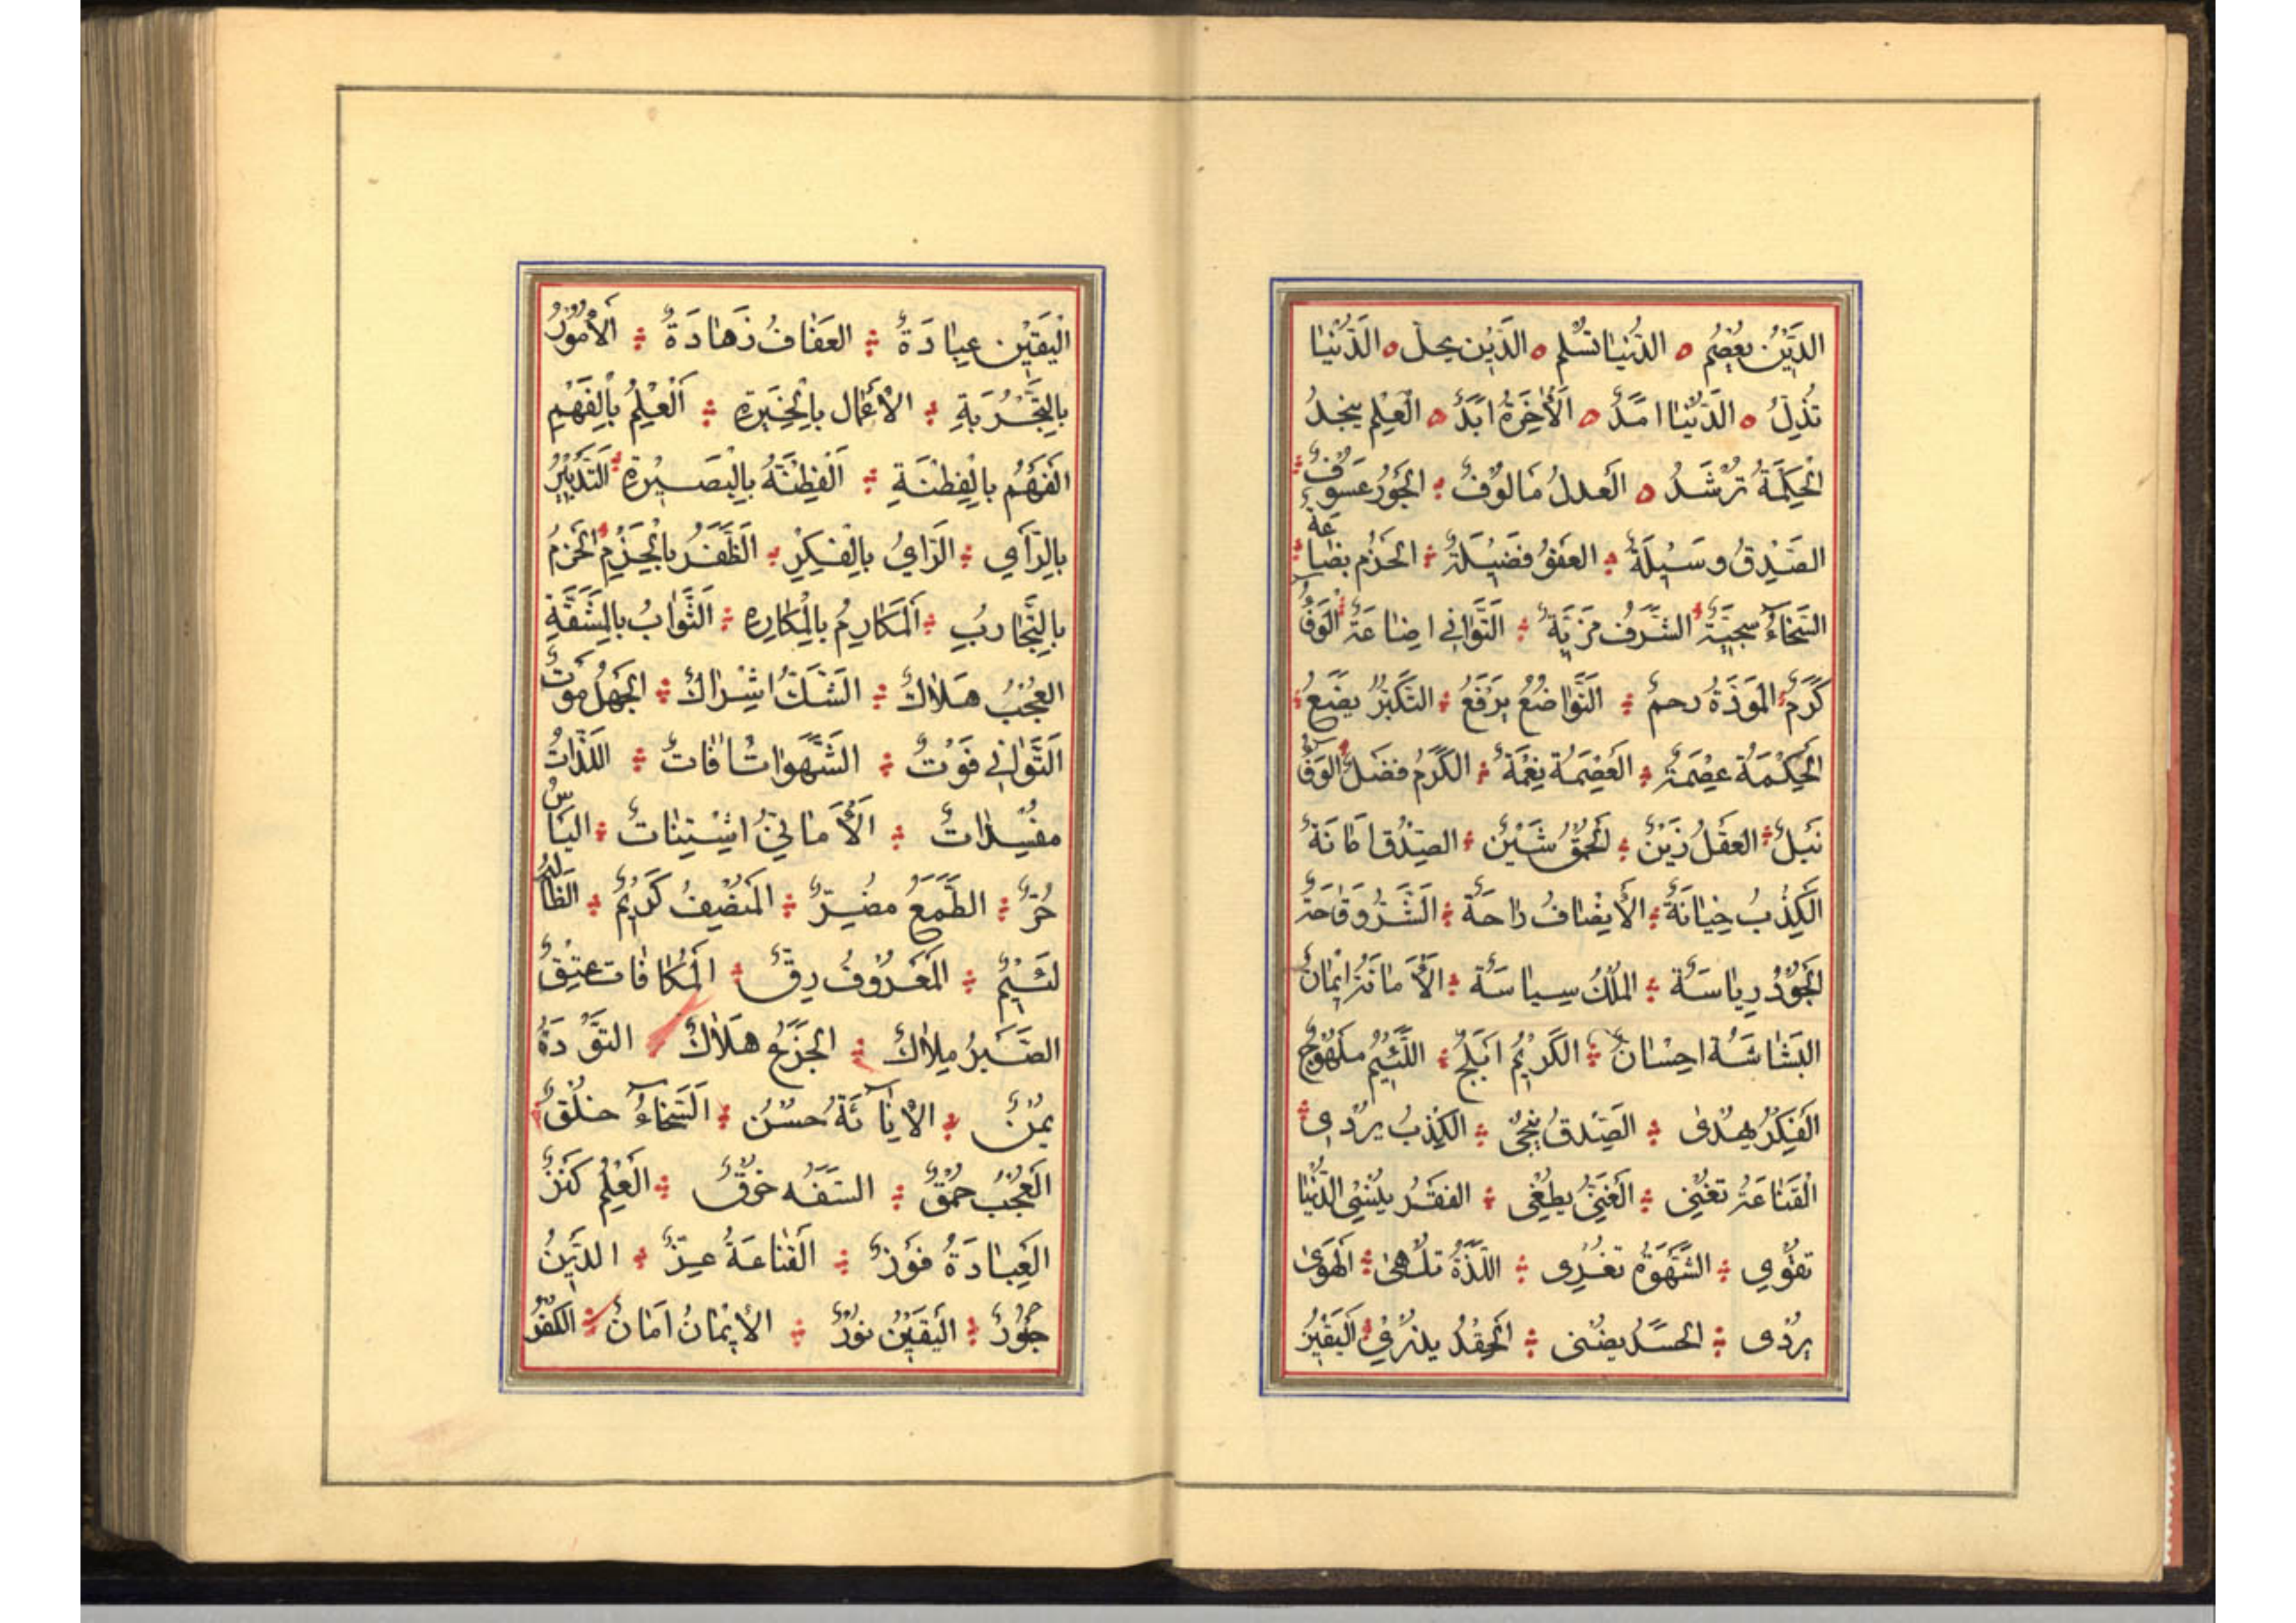 الدِّيْنُ يَعْصِمُ ه الدُّنْيَا تُسْلِمُ ه الدِّيْنُ يجلّ ه الدُّنْيَا
تُذِلُّ ه الدُّنْيَا امَدٌ ه اَلْأٰخِرَةُ ابَدٌ ه العِلْم ينجدُ
الْحِكْمَةُ تُرْشِدُ ه العَدلُ مَالُوْفٌ الجَوْرُ عَسُوْفٌ
الصِّدْقُ وَسِيْلَةٌ العفوُ فَضِيْلَةٌ الحَزْم بضَاعَةٌ
السَّخَاءُ سَجِيَّةٌ الشَّرَفُ مَزِيَّةٌ التَّوَانِي اضَاعَةٌ الْوَفَاءُ
كَرَمٌ الْمَوَدَّةُ رحمٌ التَّوَاضُعُ يَرْفَعُ التَّكَبُّرُ يضَعُ
الْحِكْمَةُ عِصْمَةٌ العِصْمَةُ نِعْمَةٌ الكَرَمُ فَضْلٌ الْوَفَاءُ
نُبْلٌ العَقْلُ زَيْنٌ الْحُمْقُ شَيْنٌ الصِّدْقُ امَانَةٌ
الْكِذْبُ خِيَانَةٌ الْأِنصَافُ رَاحَةٌ الشَّرُّ وَقَاحَةٌ
الْجُوْدُ رِيَاسَةٌ المُلْكُ سِيَاسَةٌ الْأَمَانَةُ اِيْمَانٌ
البَشَاشَةُ احِسْانٌ الكَرِيْمُ اَبْلَجٌ اللَّئِيْمُ ملَهْوَجٌ
الْفِكْرُ يهْدِى الصِّدقُ يُنْجِى الكِذْبُ يُرْدِى
الْقَنَاعَةُ تُغْنِى الْغِنَىُ يُطْغِى الفَقْرُ يُنْسِى الدُّنْيَا
تغْوِى الشَّهْوَةُ تُغْرِى اللَّذَّةُ تُلْهِى الْهَوَىٰ
يُرْدِى الحَسَدُ يُضْنِى الْحِقْدُ يذرِي اَلْيَقِيْنُ
الْيَقِيْن عِبَادَةٌ العَفَافُ زَهَادَةٌ الْأُمُوْرُ
بِالتَّجْرُبَةِ الْأَعْمَال بِالْخِبْرَةِ اَلْعِلْمُ بِالْفَهْمِ
الْفَهْمُ بِالْفِطْنَةِ اَلْفِطْنَةُ بِالْبَصِيْرَةِ التَّدْبِيْرُ
بِالرَّأيِ الرَّايُ بِالْفِكْرِ الَظَّفَرُ بِالْحَزْمِ الْحَزمُ
بِالتَّجَارِبِ اَلْمَكَارِمُ بِالْمَكَارِهِ الثَّوَابُ بِالْمَشَقَّةِ
العُجْبُ هَلَاكٌ الشَّكُّ اشْرَاكٌ الْجَهْلُ مَوْتٌ
التَّوَانِي فَوْتٌ الشَّهَوَاتُ اٰفَاتٌ اللَّذَّاتُ
مفْسِدَاتٌ اَلْأَمَانِيُّ اشْتِيَاتٌ اليَاسُ
حُرٌّ الطَّمَعُ مُضِرٌّ الْمُنْصِفُ كَرِيْمٌ الظَّالِمُ
لَئِيْمٌ الْمَعْرُوْفُ رِقٌّ الْمُكَافَات عِتْقٌ
الصَّبْرُ مِلَاكٌ الْجَزَعُ هَلَاكٌ التُّؤَدَةُ
يُمْنٌ الْأَنَائَةُ حُسْنٌ السَّخَاءُ خُلُقٌ
الْعُجْبُ حُمْقٌ السَّفَه خرقٌ اَلْعِلْمُ كَنْزٌ
الْعِبَادَةُ فَوْزٌ القَنَاعَةُ عِزٌّ الدِّيْنُ
حُبُوْرٌ الْيَقِيْنُ نُوْرٌ الْأِيْمَانُ اَمَانٌ الكُفْرُ